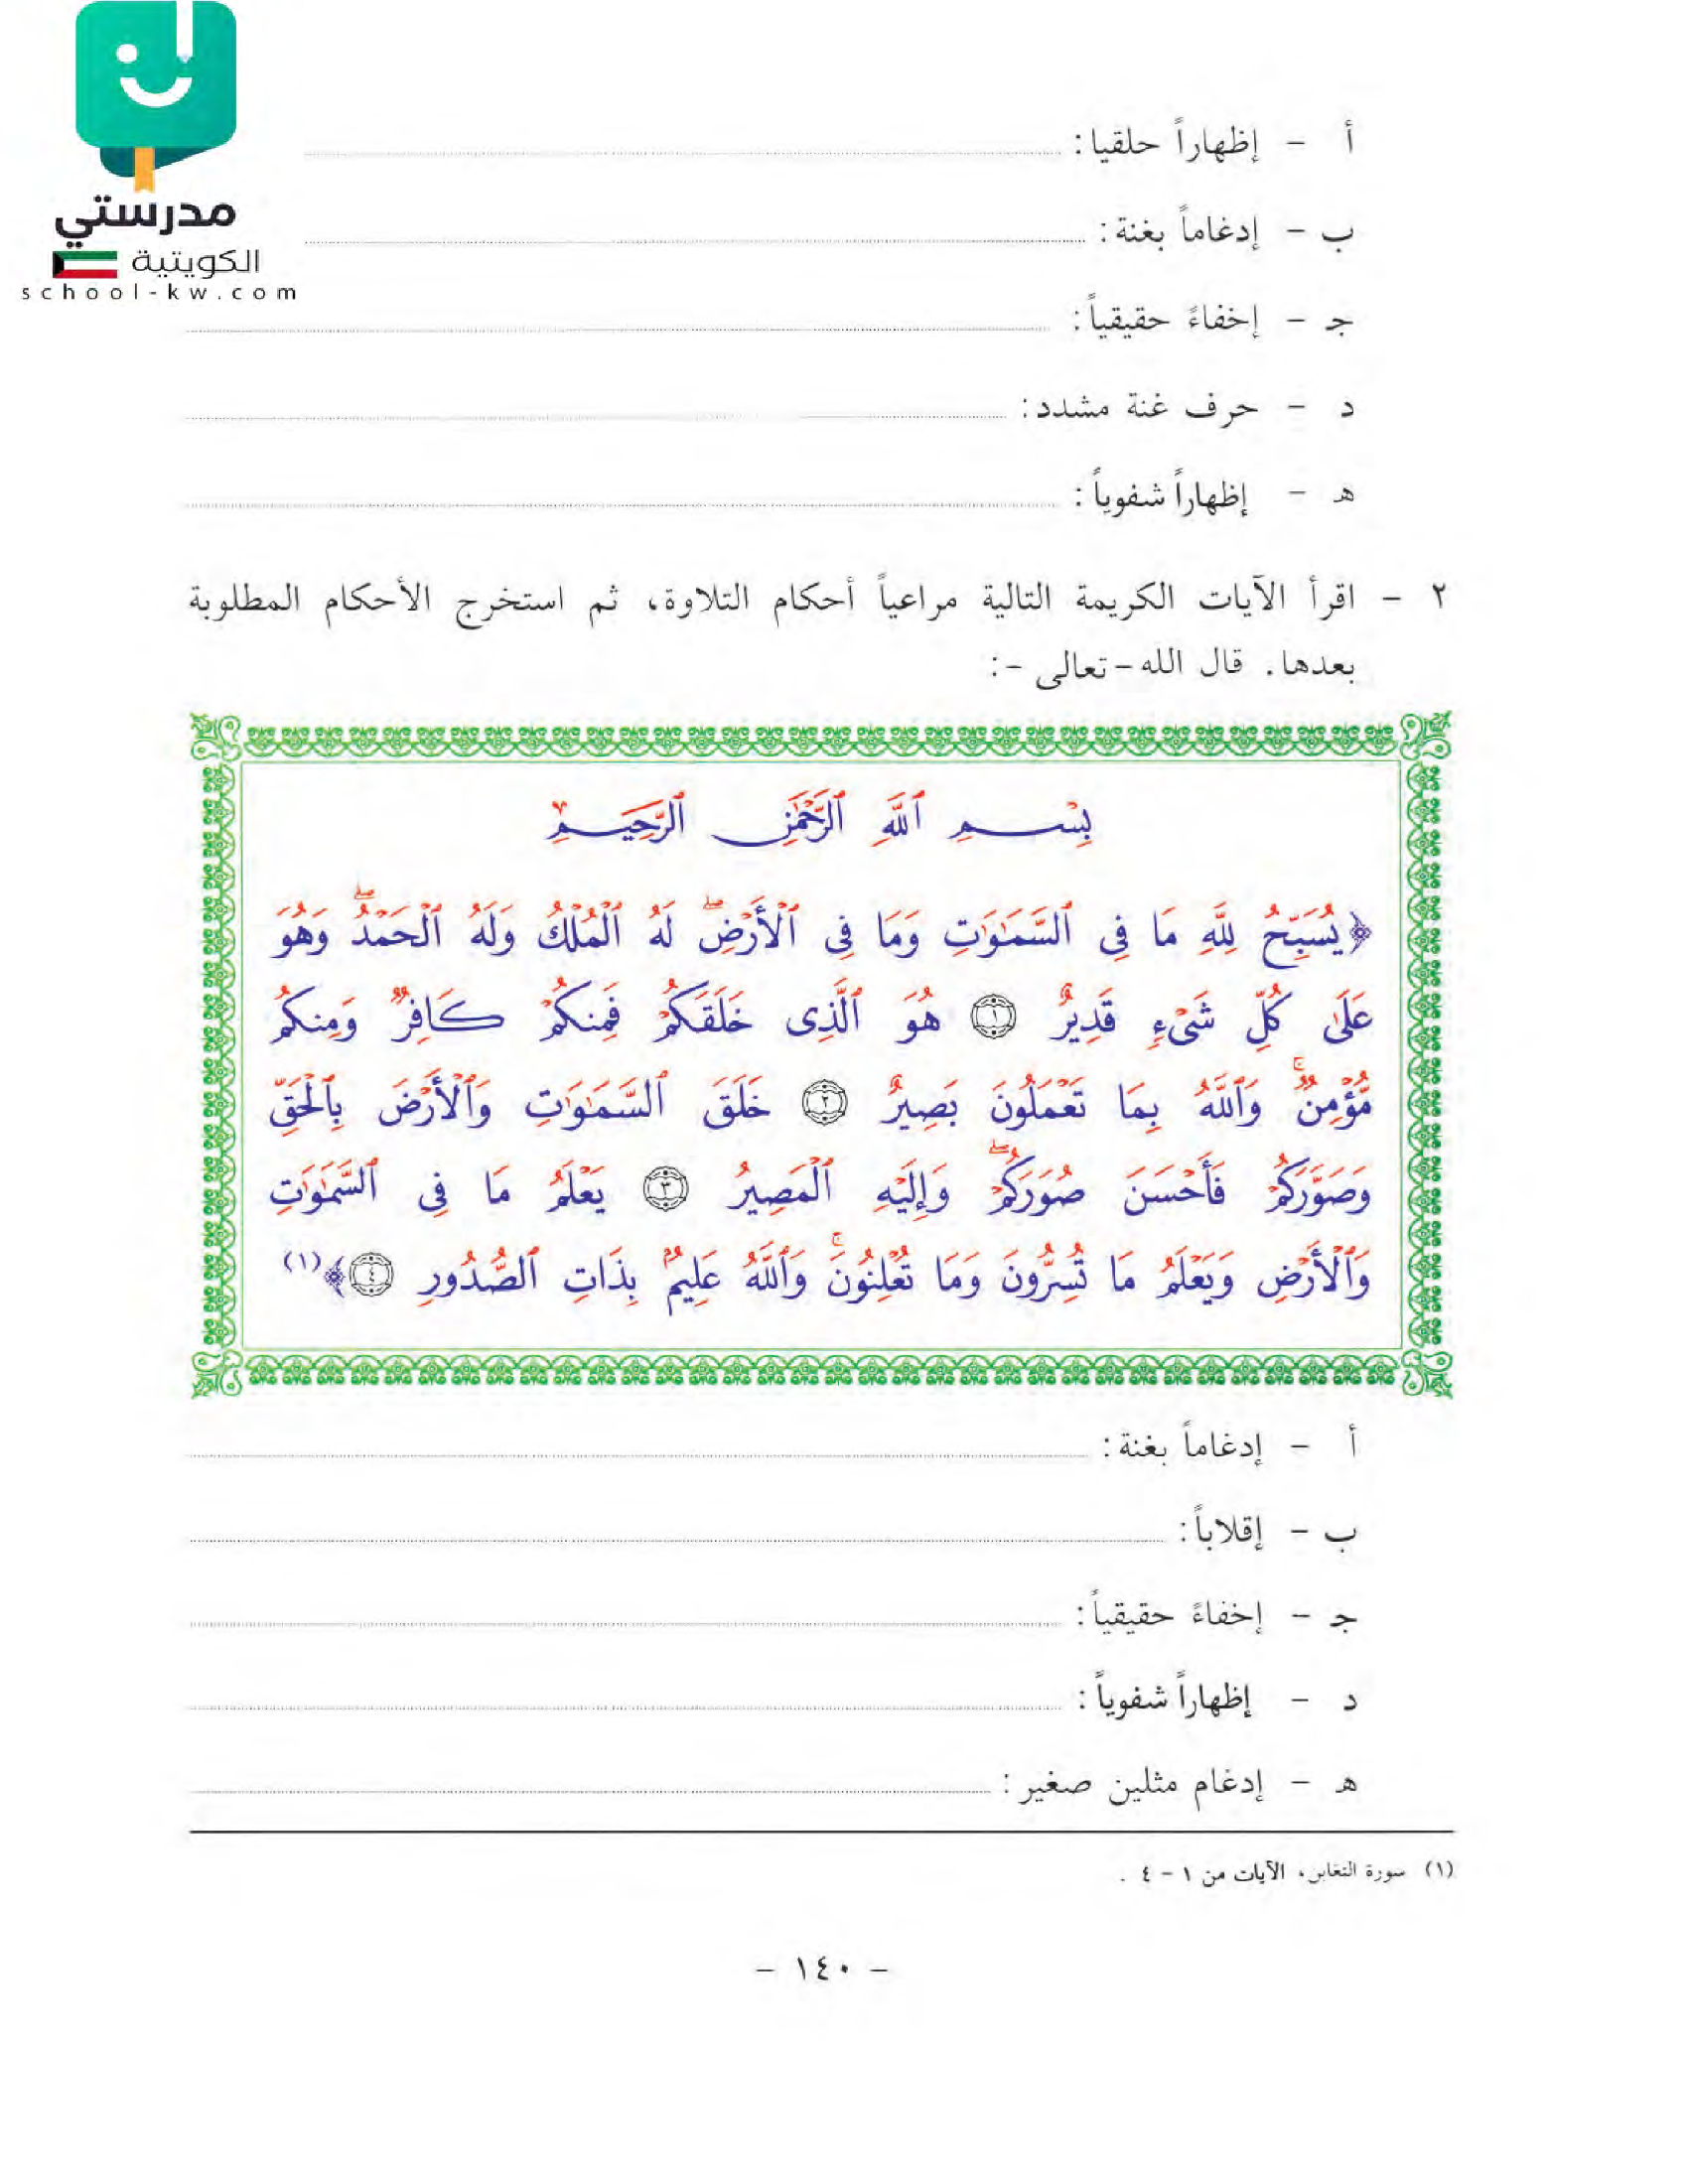 مدرستي
الكويتية
school-kw.com
أ - إظهاراً حلقيا:
ب - إدغاماً بغنة:
جـ - إخفاءً حقيقياً:
د - حرف غنة مشدد:
هـ - إظهاراً شفوياً:
٢ - اقرأ الآيات الكريمة التالية مراعياً أحكام التلاوة، ثم استخرج الأحكام المطلوبة
بعدها. قال الله - تعالى -:
بِسْمِ ٱللَّهِ ٱلرَّحْمَٰنِ ٱلرَّحِيمِ
﴿يُسَبِّحُ لِلَّهِ مَا فِى ٱلسَّمَٰوَٰتِ وَمَا فِى ٱلْأَرْضِۖ لَهُ ٱلْمُلْكُ وَلَهُ ٱلْحَمْدُۖ وَهُوَ
عَلَىٰ كُلِّ شَىْءٍ قَدِيرٌ ١ هُوَ ٱلَّذِى خَلَقَكُمْ فَمِنكُمْ كَافِرٌ وَمِنكُم
مُّؤْمِنٌۚ وَٱللَّهُ بِمَا تَعْمَلُونَ بَصِيرٌ ٢ خَلَقَ ٱلسَّمَٰوَٰتِ وَٱلْأَرْضَ بِٱلْحَقِّ
وَصَوَّرَكُمْ فَأَحْسَنَ صُوَرَكُمْۖ وَإِلَيْهِ ٱلْمَصِيرُ ٣ يَعْلَمُ مَا فِى ٱلسَّمَٰوَٰتِ
وَٱلْأَرْضِ وَيَعْلَمُ مَا تُسِرُّونَ وَمَا تُعْلِنُونَۚ وَٱللَّهُ عَلِيمٌۢ بِذَاتِ ٱلصُّدُورِ ٤﴾(١)
أ - إدغاماً بغنة:
ب - إقلاباً:
جـ - إخفاءً حقيقياً:
د - إظهاراً شفوياً:
هـ - إدغام مثلين صغير:
(١) سورة التغابن، الآيات من ١ - ٤ .
- ١٤٠ -